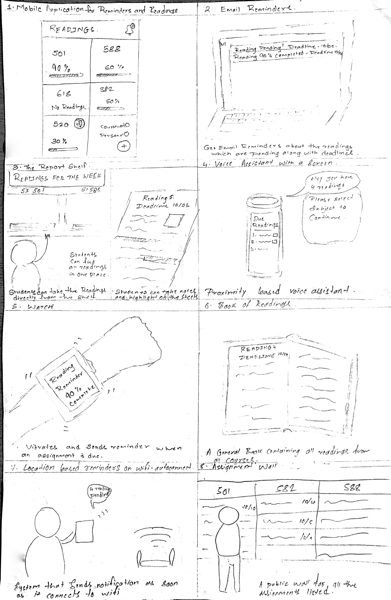 1. Mobile Application for Reminders and Readings
READINGS
501
588
90%
60%
618
582
No Readings
50%
520
30%
2. Email Reminders.
Get Email Reminders about the readings
which are pending along with deadlines.
3. The Report Shelf
READINGS FOR THE WEEK
501
Students
can
readings
in one place.
Students can take the Readings
directly from the Shelf
Readings
Deadline
Students can take notes
and highlight on the sheets
4. Voice Assistant with Screen
Hey you have
4 readings
Please select
subject to
continue
Due
Readings
1.
2.
3.
Proximity based voice assistant.
5. Watch
Reading
Reminder
90%
Complete
Vibrates and Sends reminder when
an assignment is due.
6. Book of Readings
READINGS
DEADLINE
A General Book containing all readings
courses.
7. Location based reminders on wifi
System that sends notification as soon
as connects to wifi
8. Assignment Wall
501
582
588
A public wall for all the
assignments listed.